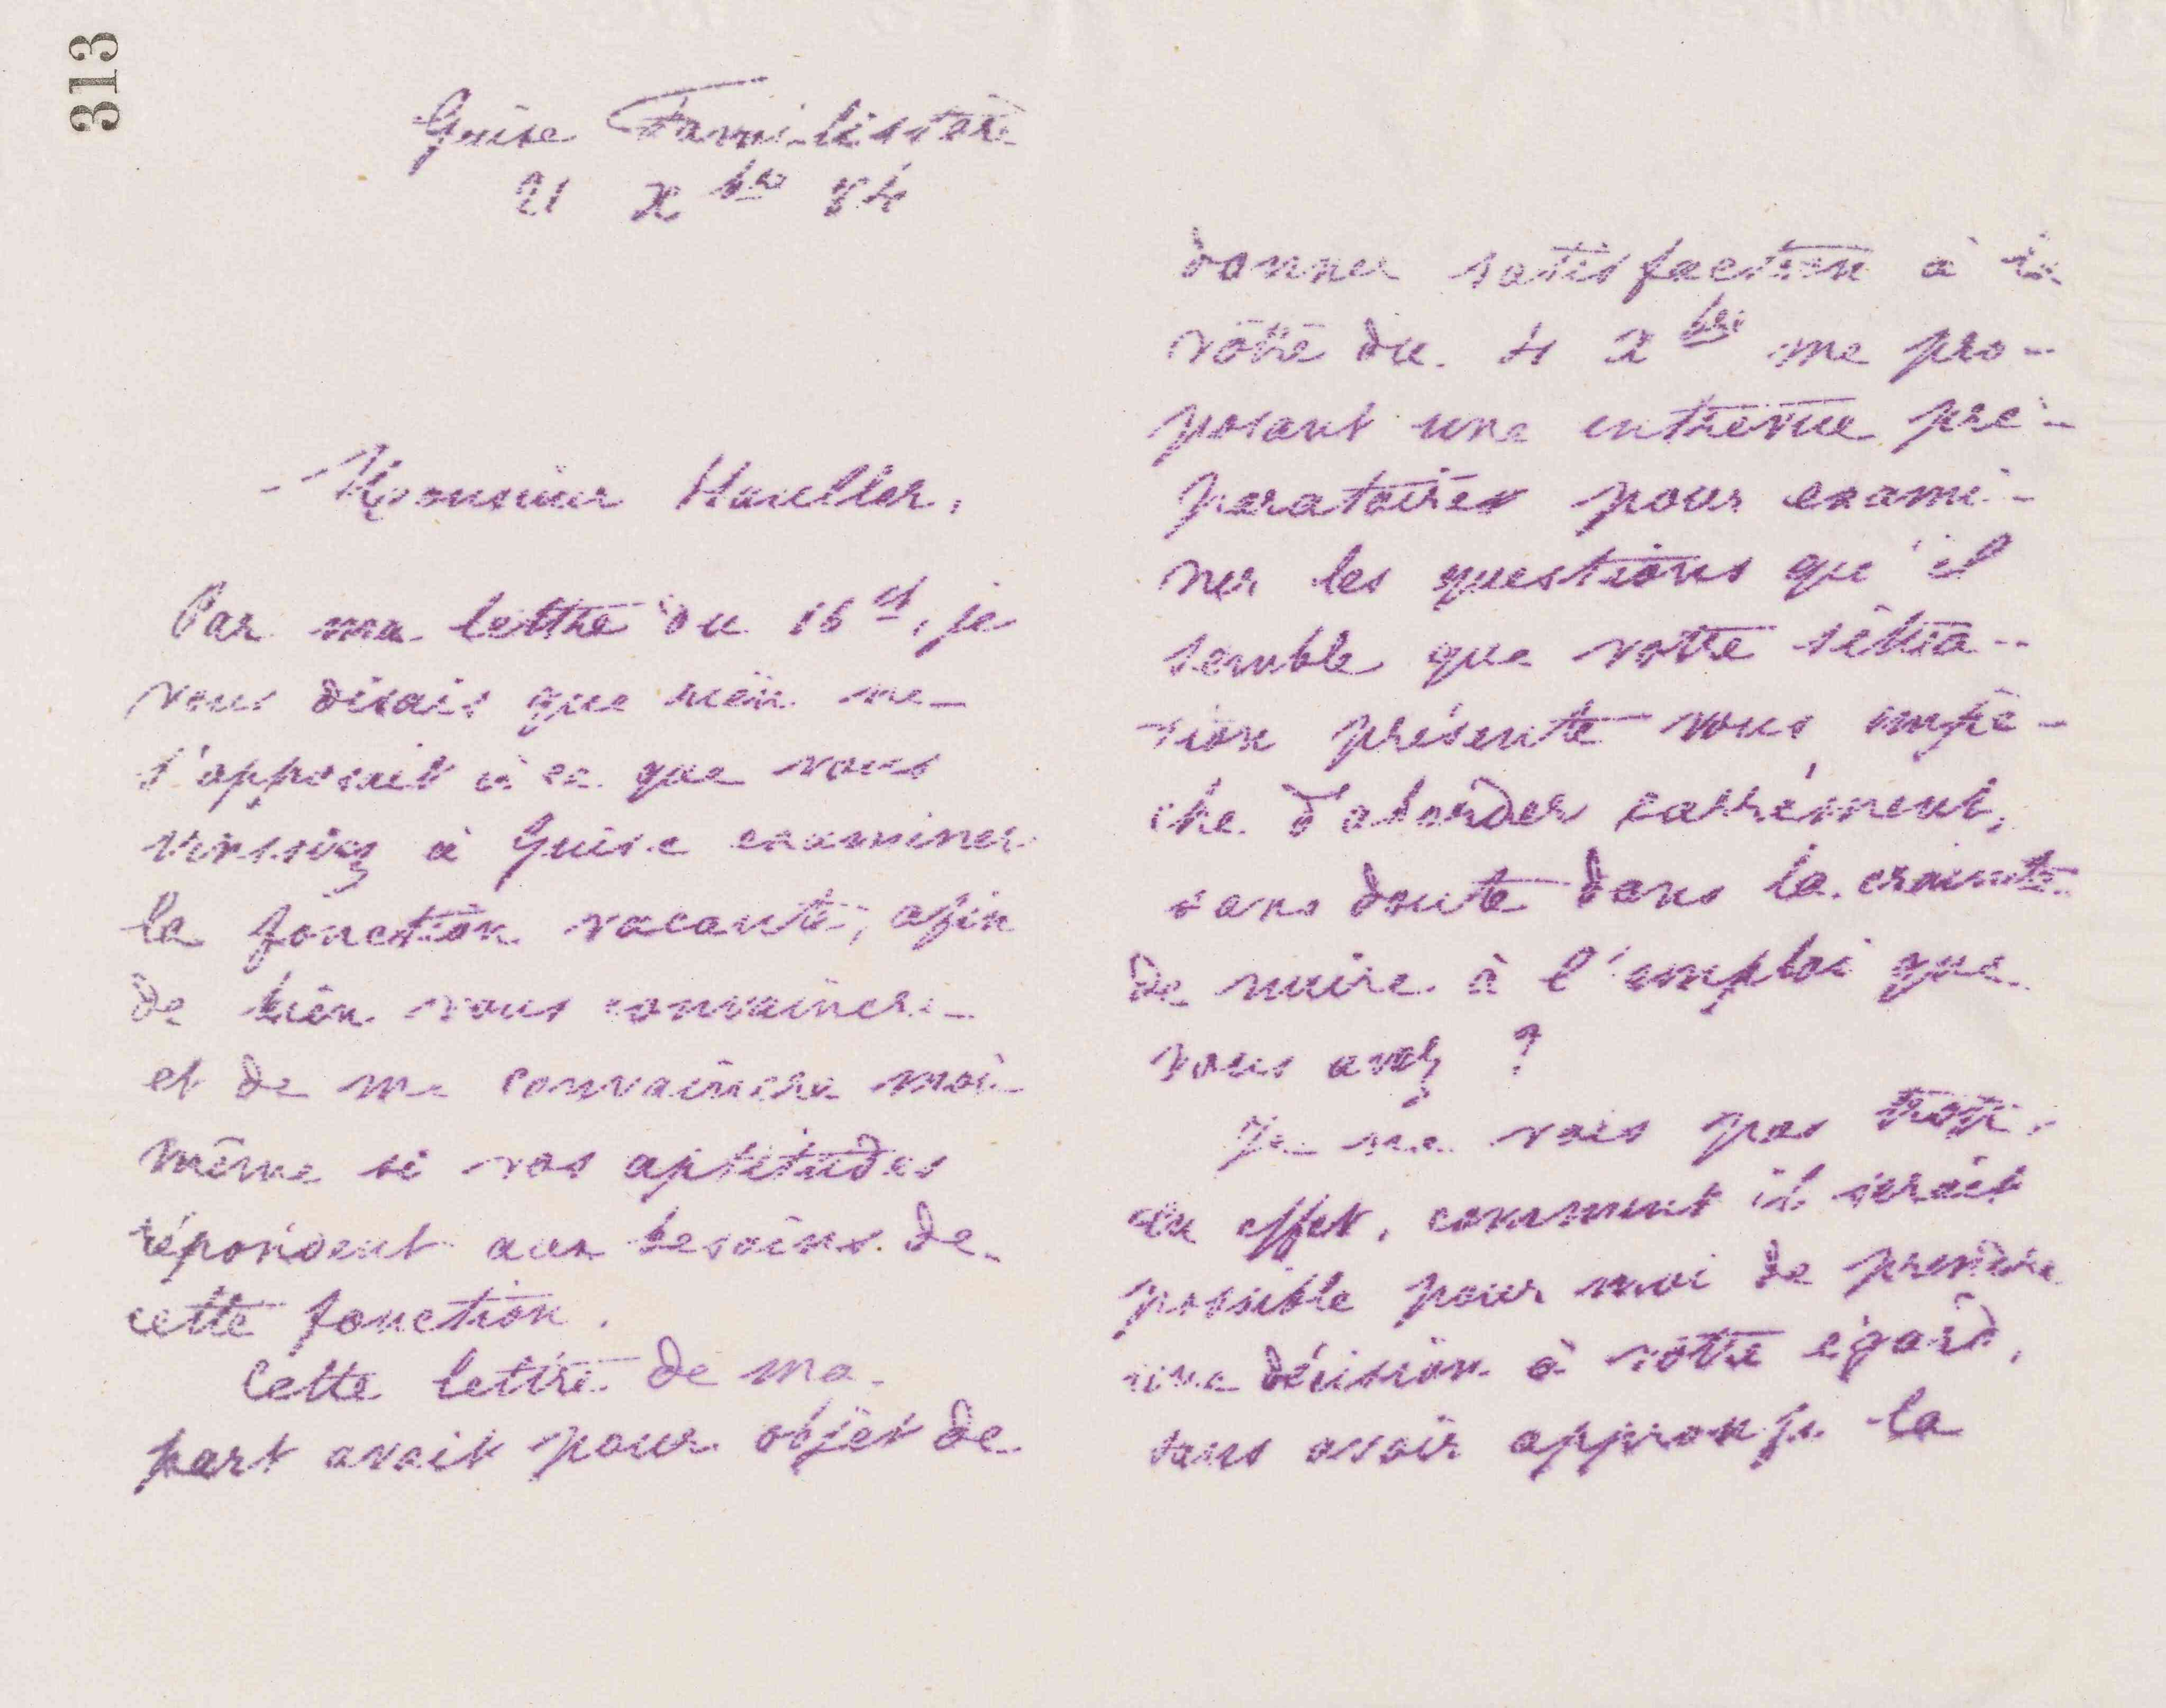 313
Guise Familistère
21 Xbre 84
Monsieur Haueller,
Par ma lettre du 16 ct, je
vous disais que rien ne
s'opposait à ce que vous
vinssiez à Guise examiner
la fonction vacante, afin
de bien vous convaincre
et de me convaincre moi
même si vos aptitudes
répondent aux besoins de
cette fonction.
Cette lettre de ma
part avait pour objet de
donner satisfaction à la
vôtre du 4 Xbre me pro-
posant une entrevue pré-
paratoires pour exami-
ner les questions qu'il
semble que votre situa-
tion présente vous empê-
che d'aborder carrément,
sans doute dans la crainte
de nuire à l'emploi que
vous avez ?
Je ne vois pas trop,
en effet, comment il serait
possible pour moi de prendre
une décision à votre égard,
sans avoir approfon la